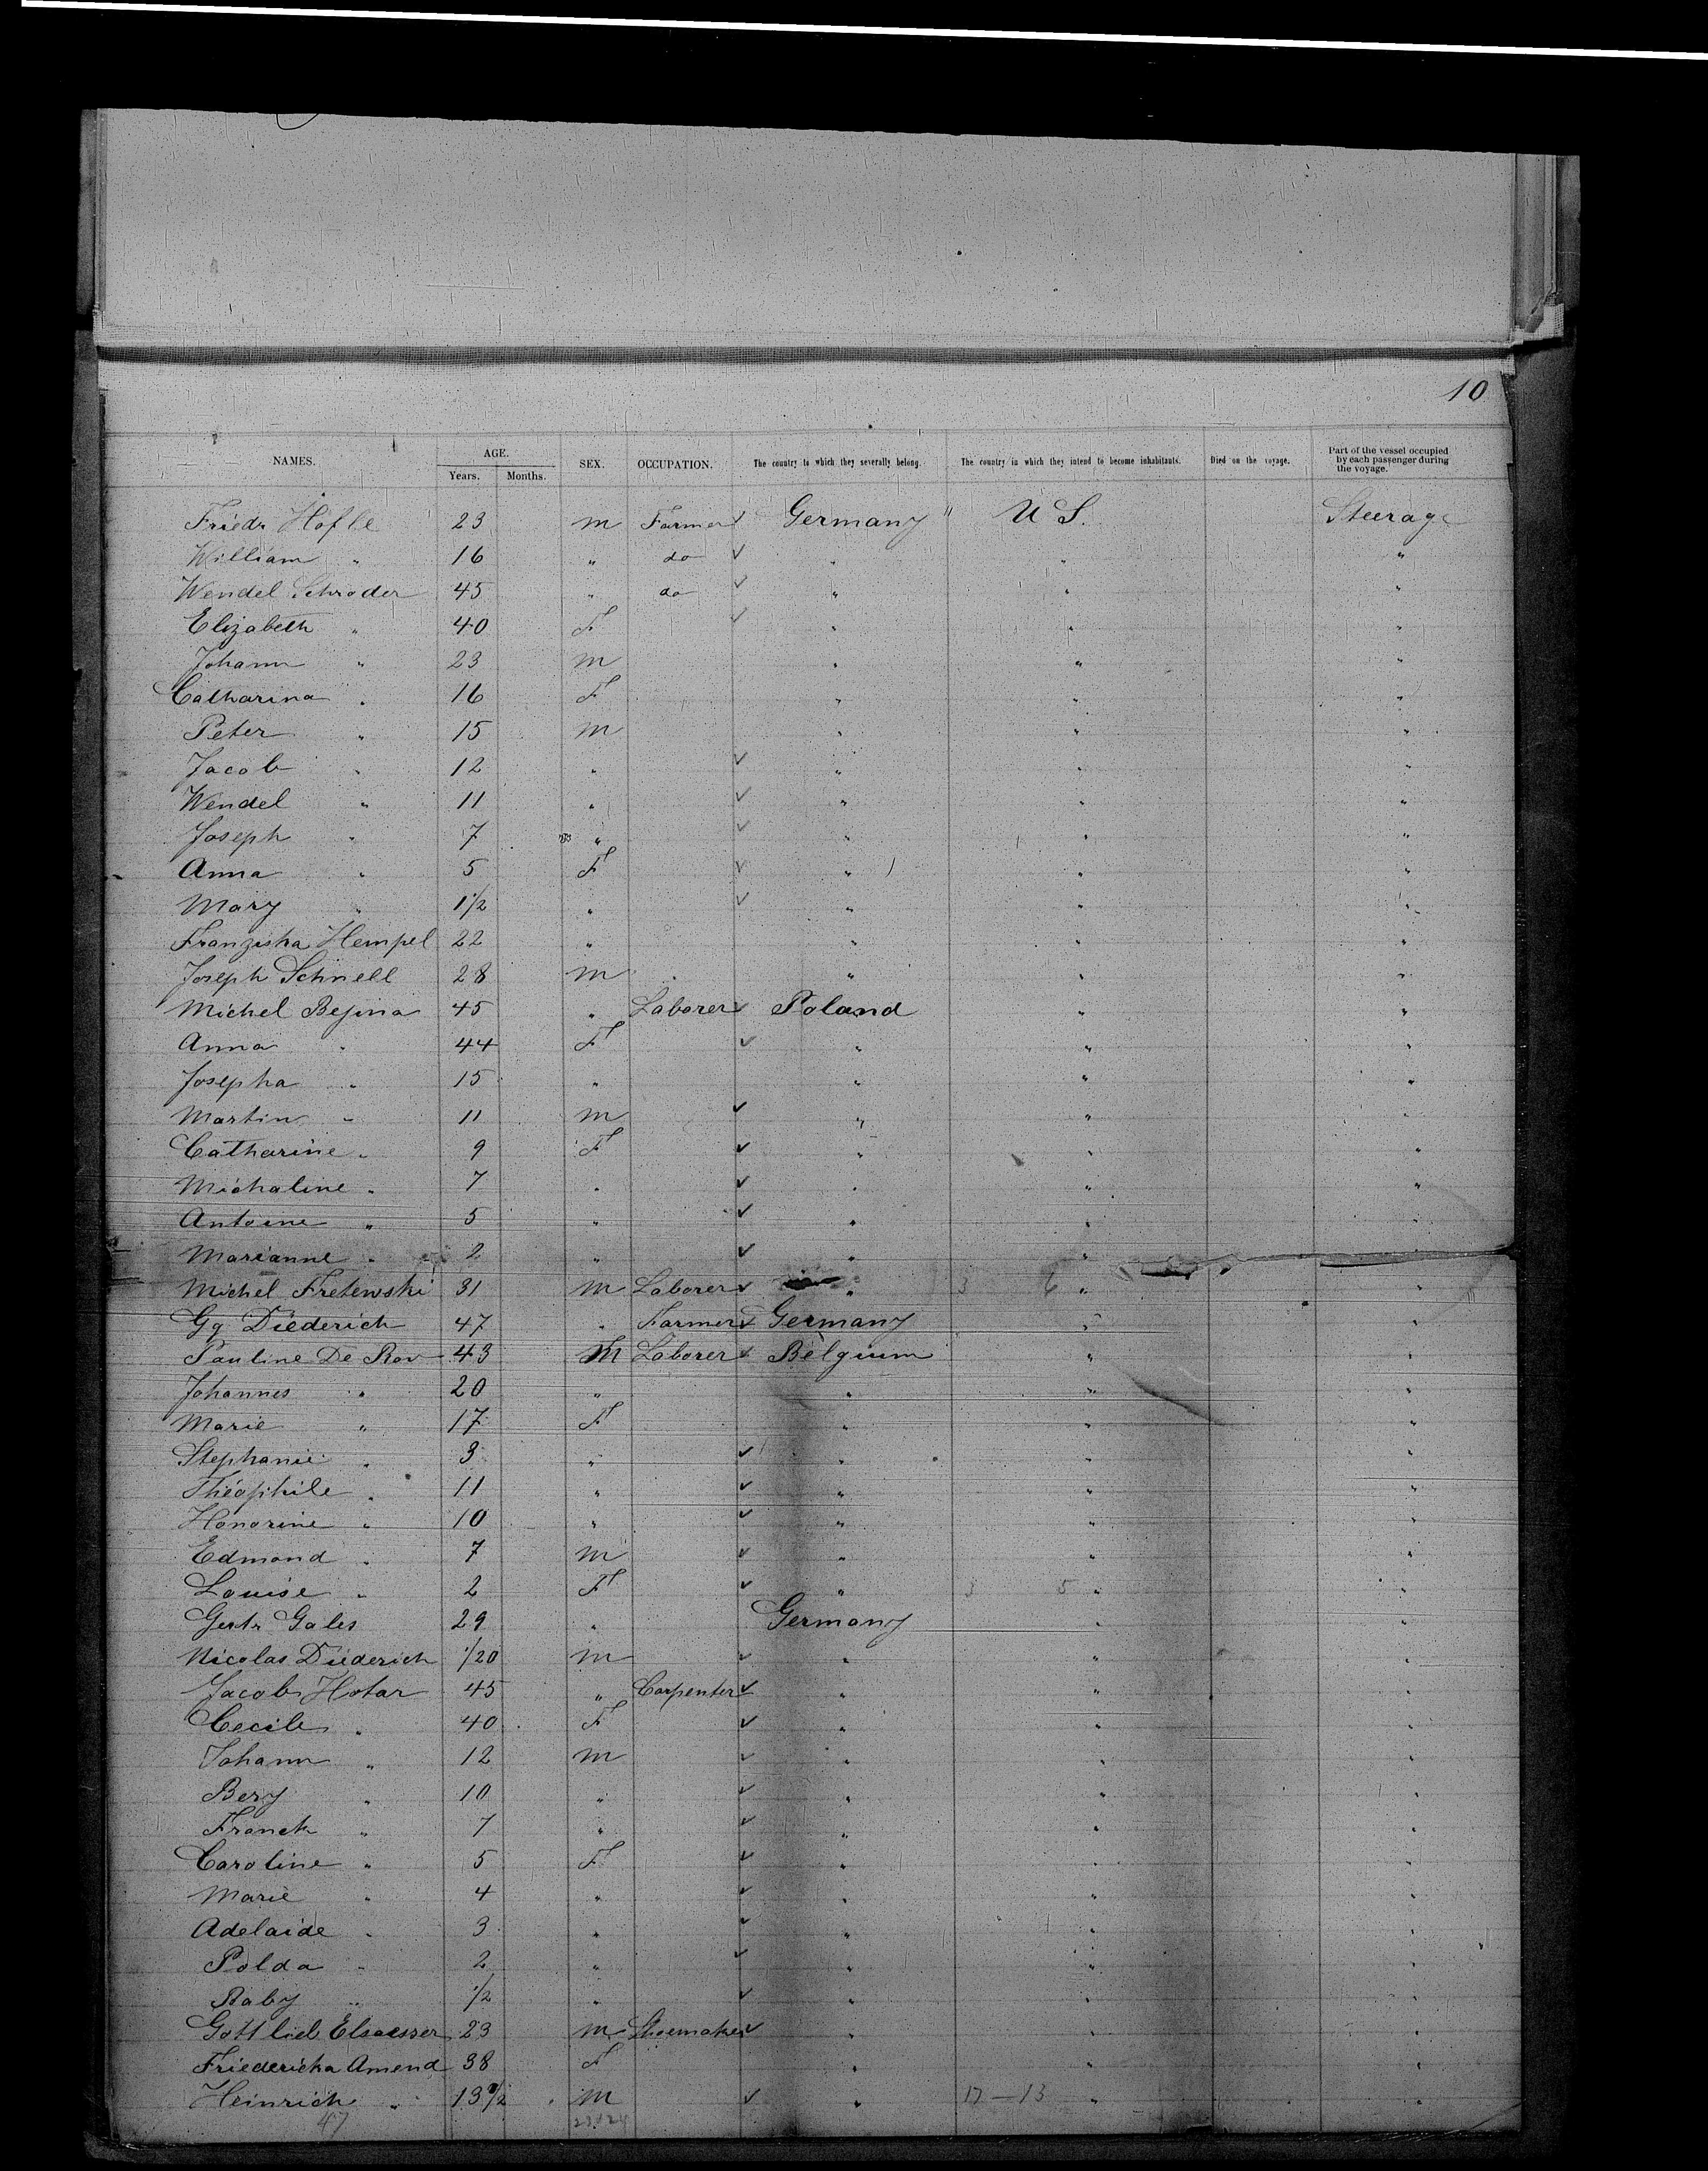 10
NAMES. AGE. Years. Months. SEX. OCCUPATION. The country to which they severally belong. The country in which they intend to become inhabitants. Died on the voyage. Part of the vessel occupied by each passenger during the voyage.
Friedr Hofle 23 m Farmer ✓ Germany " U S. Steerage
William " 16 " do ✓ " " "
Wendel Schroder 45 " do ✓ " " "
Elizabeth " 40 F ✓ " " "
Johann " 23 m " " "
Catharina " 16 F " " "
Peter " 15 m " " "
Jacob " 12 " ✓ " " "
Wendel " 11 " ✓ " " "
Joseph " 7 " ✓ " " "
Anna " 5 F ✓ " " "
Mary " 1 1/2 " ✓ " " "
Franziska Hempel 22 " " " "
Joseph Schnell 28 m " " "
Michel Bejina 45 " Laborer ✓ Poland " "
Anna " 44 F ✓ " " "
Josepha " 15 " " " "
Martin " 11 m ✓ " " "
Catharine " 9 F ✓ " " "
Michaline " 7 " ✓ " " "
Antoine " 5 " ✓ " " "
Marianne " 2 " ✓ " " "
Michel Fretewski 31 m Laborer ✓ " 3 6 " "
Gg Diederich 47 " Farmer ✓ Germany " "
Pauline De Rov 43 M Laborer ✓ Belgium " "
Johannes " 20 " " " "
Marie " 17 F " " "
Stephanie " 3 " ✓ " " "
Theophile " 11 " ✓ " " "
Honorine " 10 " ✓ " " "
Edmond " 7 m ✓ " " "
Louise " 2 F ✓ " 3 5 " "
Gertr Gales 29 " Germany " "
Nicolas Diederich 1/20 m ✓ " " "
Jacob Hotar 45 " Carpenter ✓ " " "
Cecile " 40 F ✓ " " "
Johann " 12 m ✓ " " "
Bery " 10 " ✓ " " "
Franck " 7 " ✓ " " "
Caroline " 5 F ✓ " " "
Marie " 4 " ✓ " " "
Adelaide " 3 " ✓ " " "
Polda " 2 " ✓ " " "
Baby " 1/2 " ✓ " " "
Gottlieb Elsaesser 23 m Shoemaker ✓ " " "
Friedericka Amend 38 F " " "
Heinrich " 13 1/2 m ✓ " 17 — 13 " "
47 23 24